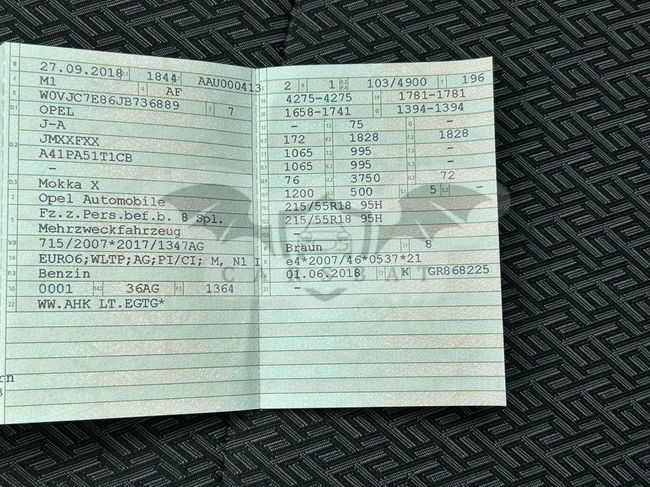 27.09.2018 1844 AAU000413
M1 AF
W0VJC7E86JB736889 7
OPEL
J-A
JMXXFXX
A41PA51T1CB
-
Mokka X
Opel Automobile
Fz.z.Pers.bef.b. 8 Spl.
Mehrzweckfahrzeug
715/2007*2017/1347AG
EURO6;WLTP;AG;PI/CI; M, N1 I
Benzin
0001 36AG 1364
WW.AHK LT.EGTG*
2 1 103/4900 196
4275-4275 1781-1781
1658-1741 1394-1394
- 75 -
172 1828 1828
1065 995 -
1065 995 -
76 3750 72
1200 500 5 -
215/55R18 95H
215/55R18 95H
-
Braun 8
e4*2007/46*0537*21
01.06.2018 K GR868225
-
CARSBAT